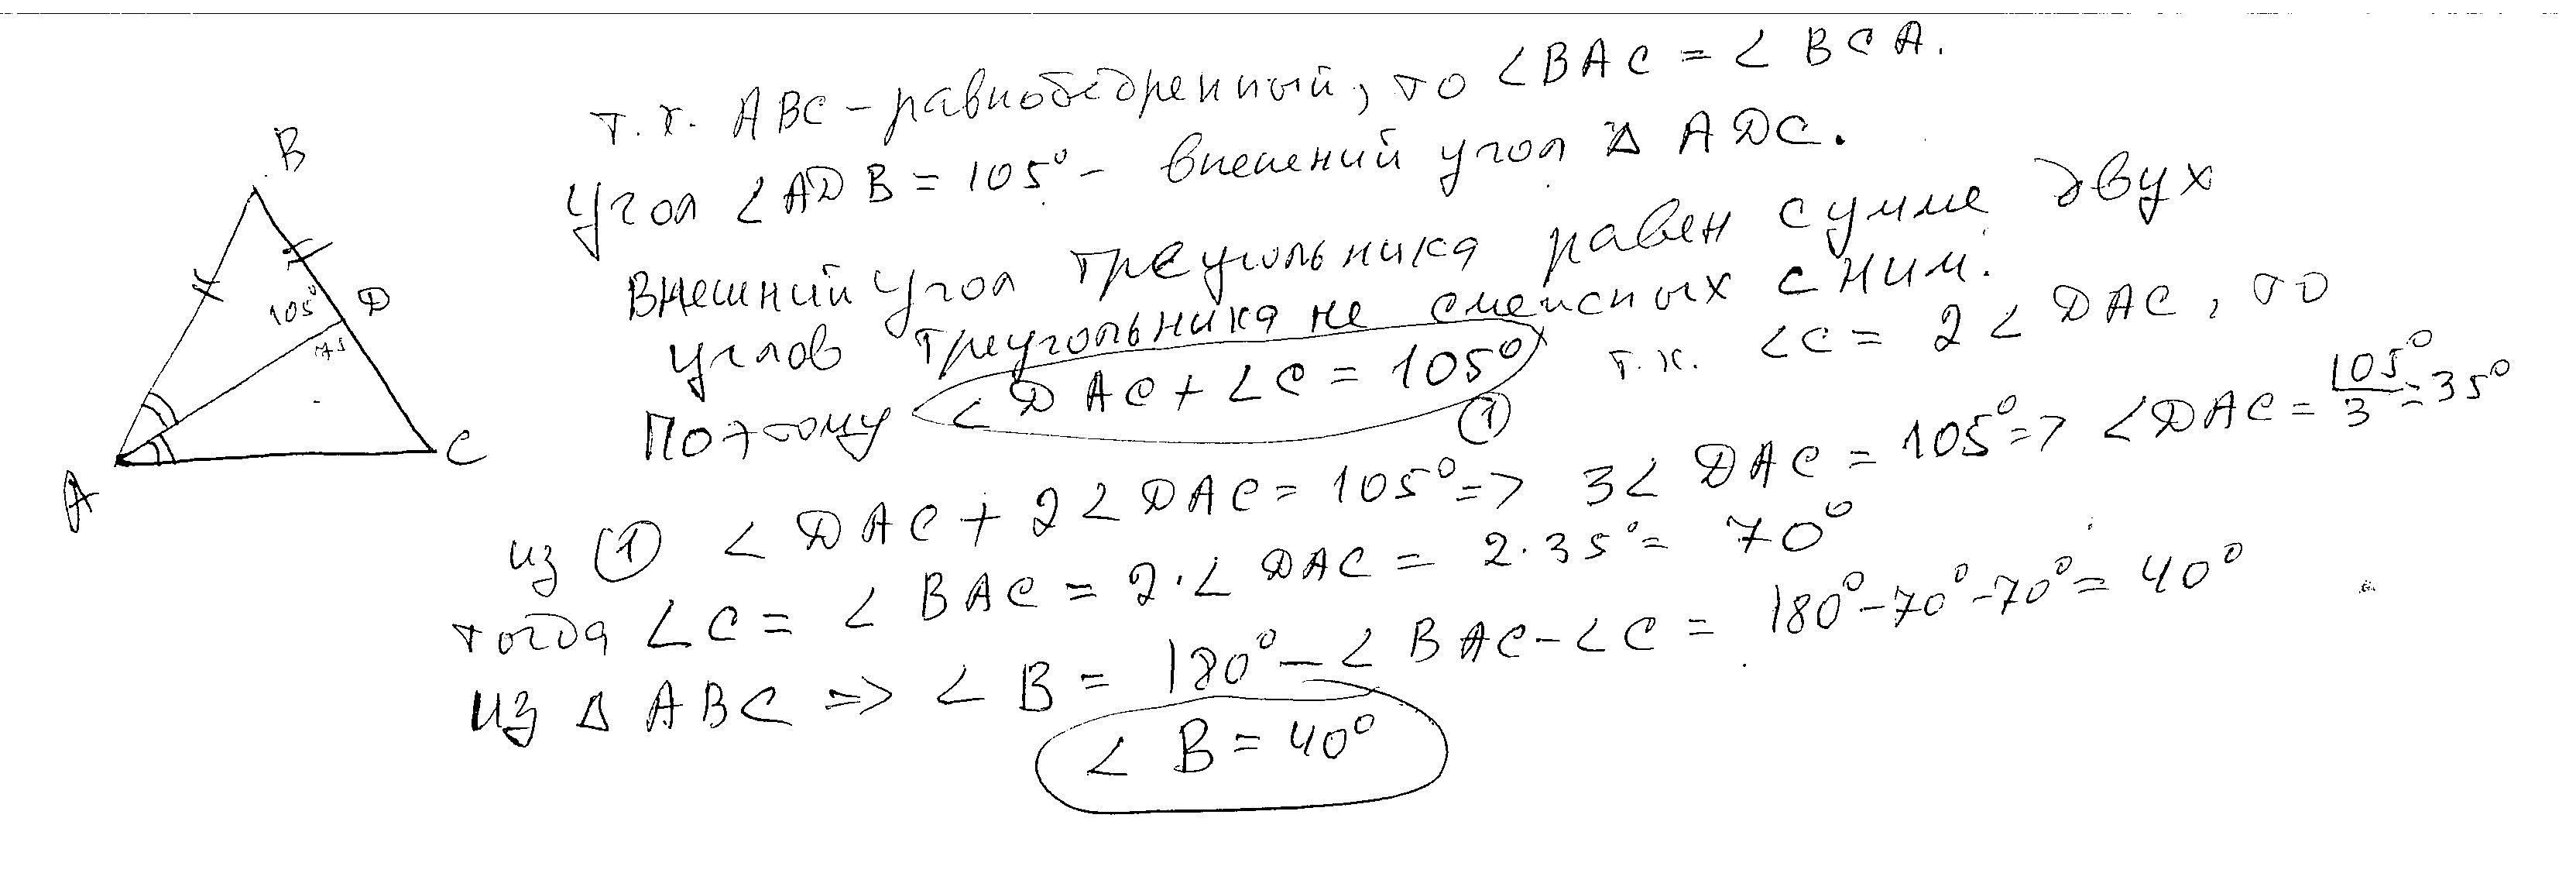 т.к. ABC - равнобедренный, то ∠BAC = ∠BCA.
Угол ∠ADB = 105° - внешний угол △ ADC.
Внешний угол треугольника равен сумме двух
углов треугольника не смежных с ним.
Поэтому ∠DAC + ∠C = 105° ① т.к. ∠C = 2∠DAC, то
из ① ∠DAC + 2∠DAC = 105° => 3∠DAC = 105° => ∠DAC = 105°/3 = 35°
тогда ∠C = ∠BAC = 2·∠DAC = 2·35° = 70°
из △ ABC => ∠B = 180° - ∠BAC - ∠C = 180° - 70° - 70° = 40°
∠B = 40°
B
105°
D
75
A
C